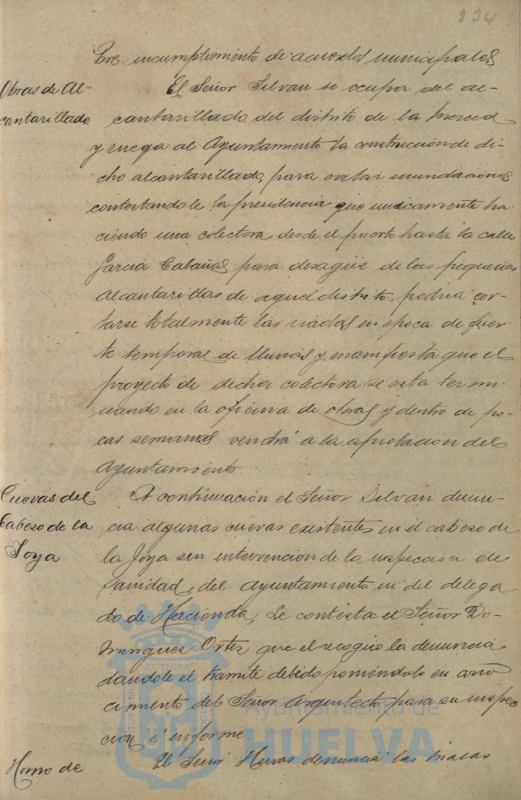 134
Por incumplimiento de acuerdos municipales
Obras de Al-
cantarillado
El Señor Silvan se ocupa del al-
cantarillado del distrito de la Merced
y ruega al Ayuntamiento la construcción de di-
cho alcantarillado, para evitar inundaciones
contestandole la presidencia que unicamente ha-
ciendo una colectora desde el puerto hasta la calle
Garcia Cabañas para desagüe de las pequeñas
alcantarillas de aquel distrito podria cor-
tarse totalmente las riadas en epoca de fuer-
te temporal de lluvias y manifiesta que el
proyecto de dicha colectora se esta termi-
nando en la oficina de obras y dentro de po-
cas semanas vendrá a la aprobacion del
Ayuntamiento.
Cuevas del
Cabezo de la
Joya
A continuación el Señor Silvan denun-
cia algunas cuevas existentes en el cabezo de
la Joya sin intervencion de la inspección de
Sanidad, del ayuntamiento ni del delega-
do de Hacienda, Le contesta el Señor Do-
minguez Ortiz que el recogio la denuncia
dandole el tramite debido poniendolo en cono-
cimiento del Señor Arquitecto para su inspec-
cion é informe
Horno de
El Señor Heras denuncia las malas
Ayuntamiento de
HUELVA